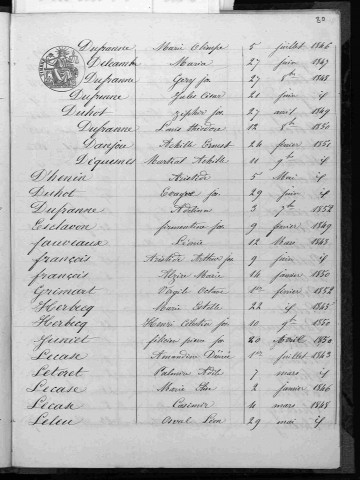 20
Dufranne Marie Olimpe 5 juillet 1846
Delcambe Maria 27 juin 1847
Dufranne Géry 27 8bre 1848
Dufranne Jules César 21 juin if
Duhot Zéphir 27 avril 1849
Dufranne Louis Théodore 12 8bre 1850
Danjou Achille Ernest 24 février 1851
Déquesnes Martial Achille 11 9bre if
Dhenin Aristide 5 Mai if
Duhot 29 juin if
Dufranne 3 7bre 1852
Esclavon 9 février 1849
fauveaux Léonie 12 Mars 1845
françois Aristide Arthur 9 juin if
françois Alzire Marie 14 janvier 1850
Grimart Virgile Octave 1er février 1852
Herbecq Marie Estelle 22 if 1845
Herbecq Henri Célestin 10 9bre 1850
20 Avril 1850
Lecase Amandine Désirée 1er juillet 1843
Létoret Palmire 7 mars if
Lecase Marie 2 janvier 1846
Lecase Casimir 4 mars 1848
Leleu Orval Léon 29 mai if